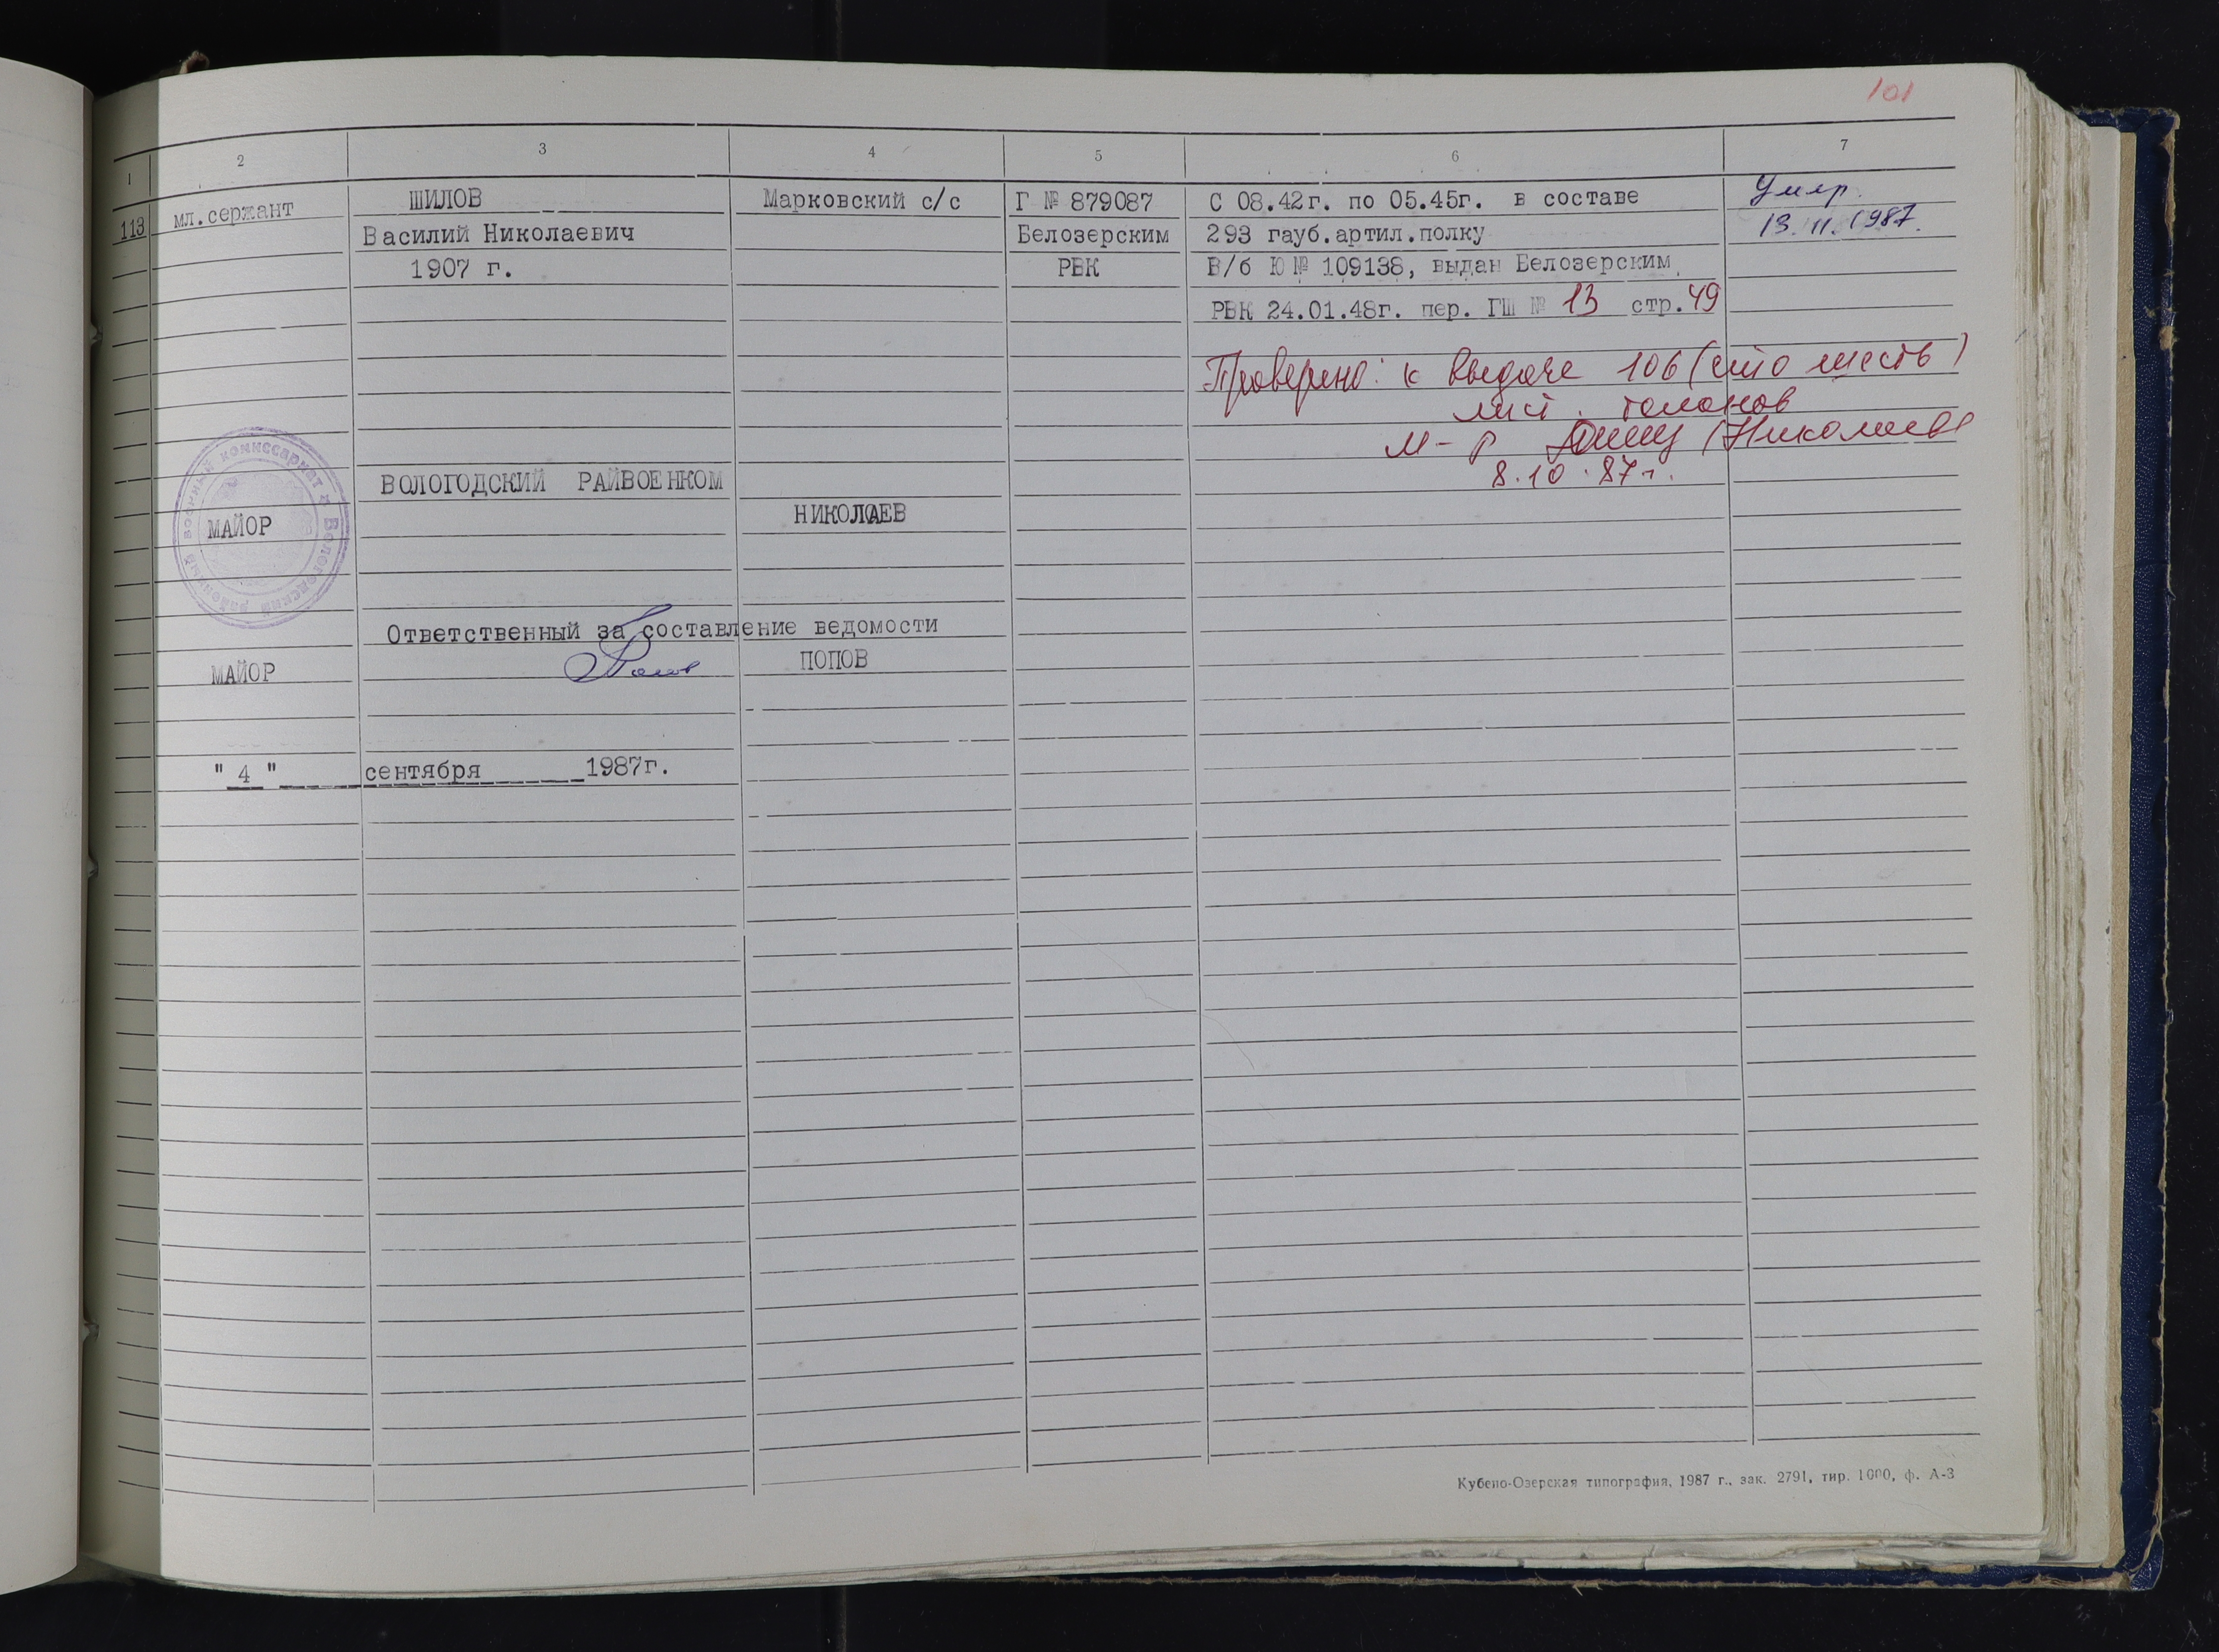 101
1 2 3 4 5 6 7
113 мл.сержант ШИЛОВ Марковский с/с Г № 879087 С 08.42г. по 05.45г. в составе Умер.
Василий Николаевич Белозерским 293 гауб.артил.полку 13.11.1987.
1907 г. РВК В/б Ю № 109138, выдан Белозерским
РВК 24.01.48г. пер. ГШ № 13 стр.49
Проверено: к выдаче 106 (сто шесть)
лист. талонов
м-р (Николаев
8.10.87г.
ВОЛОГОДСКИЙ РАЙВОЕНКОМ
МАЙОР НИКОЛАЕВ
военный комиссариат Вологодский район
Ответственный за составление ведомости
МАЙОР Попов ПОПОВ
" 4 " сентября 1987г.
Кубено-Озерская типография, 1987 г., зак. 2791, тир. 1000, ф. А-3